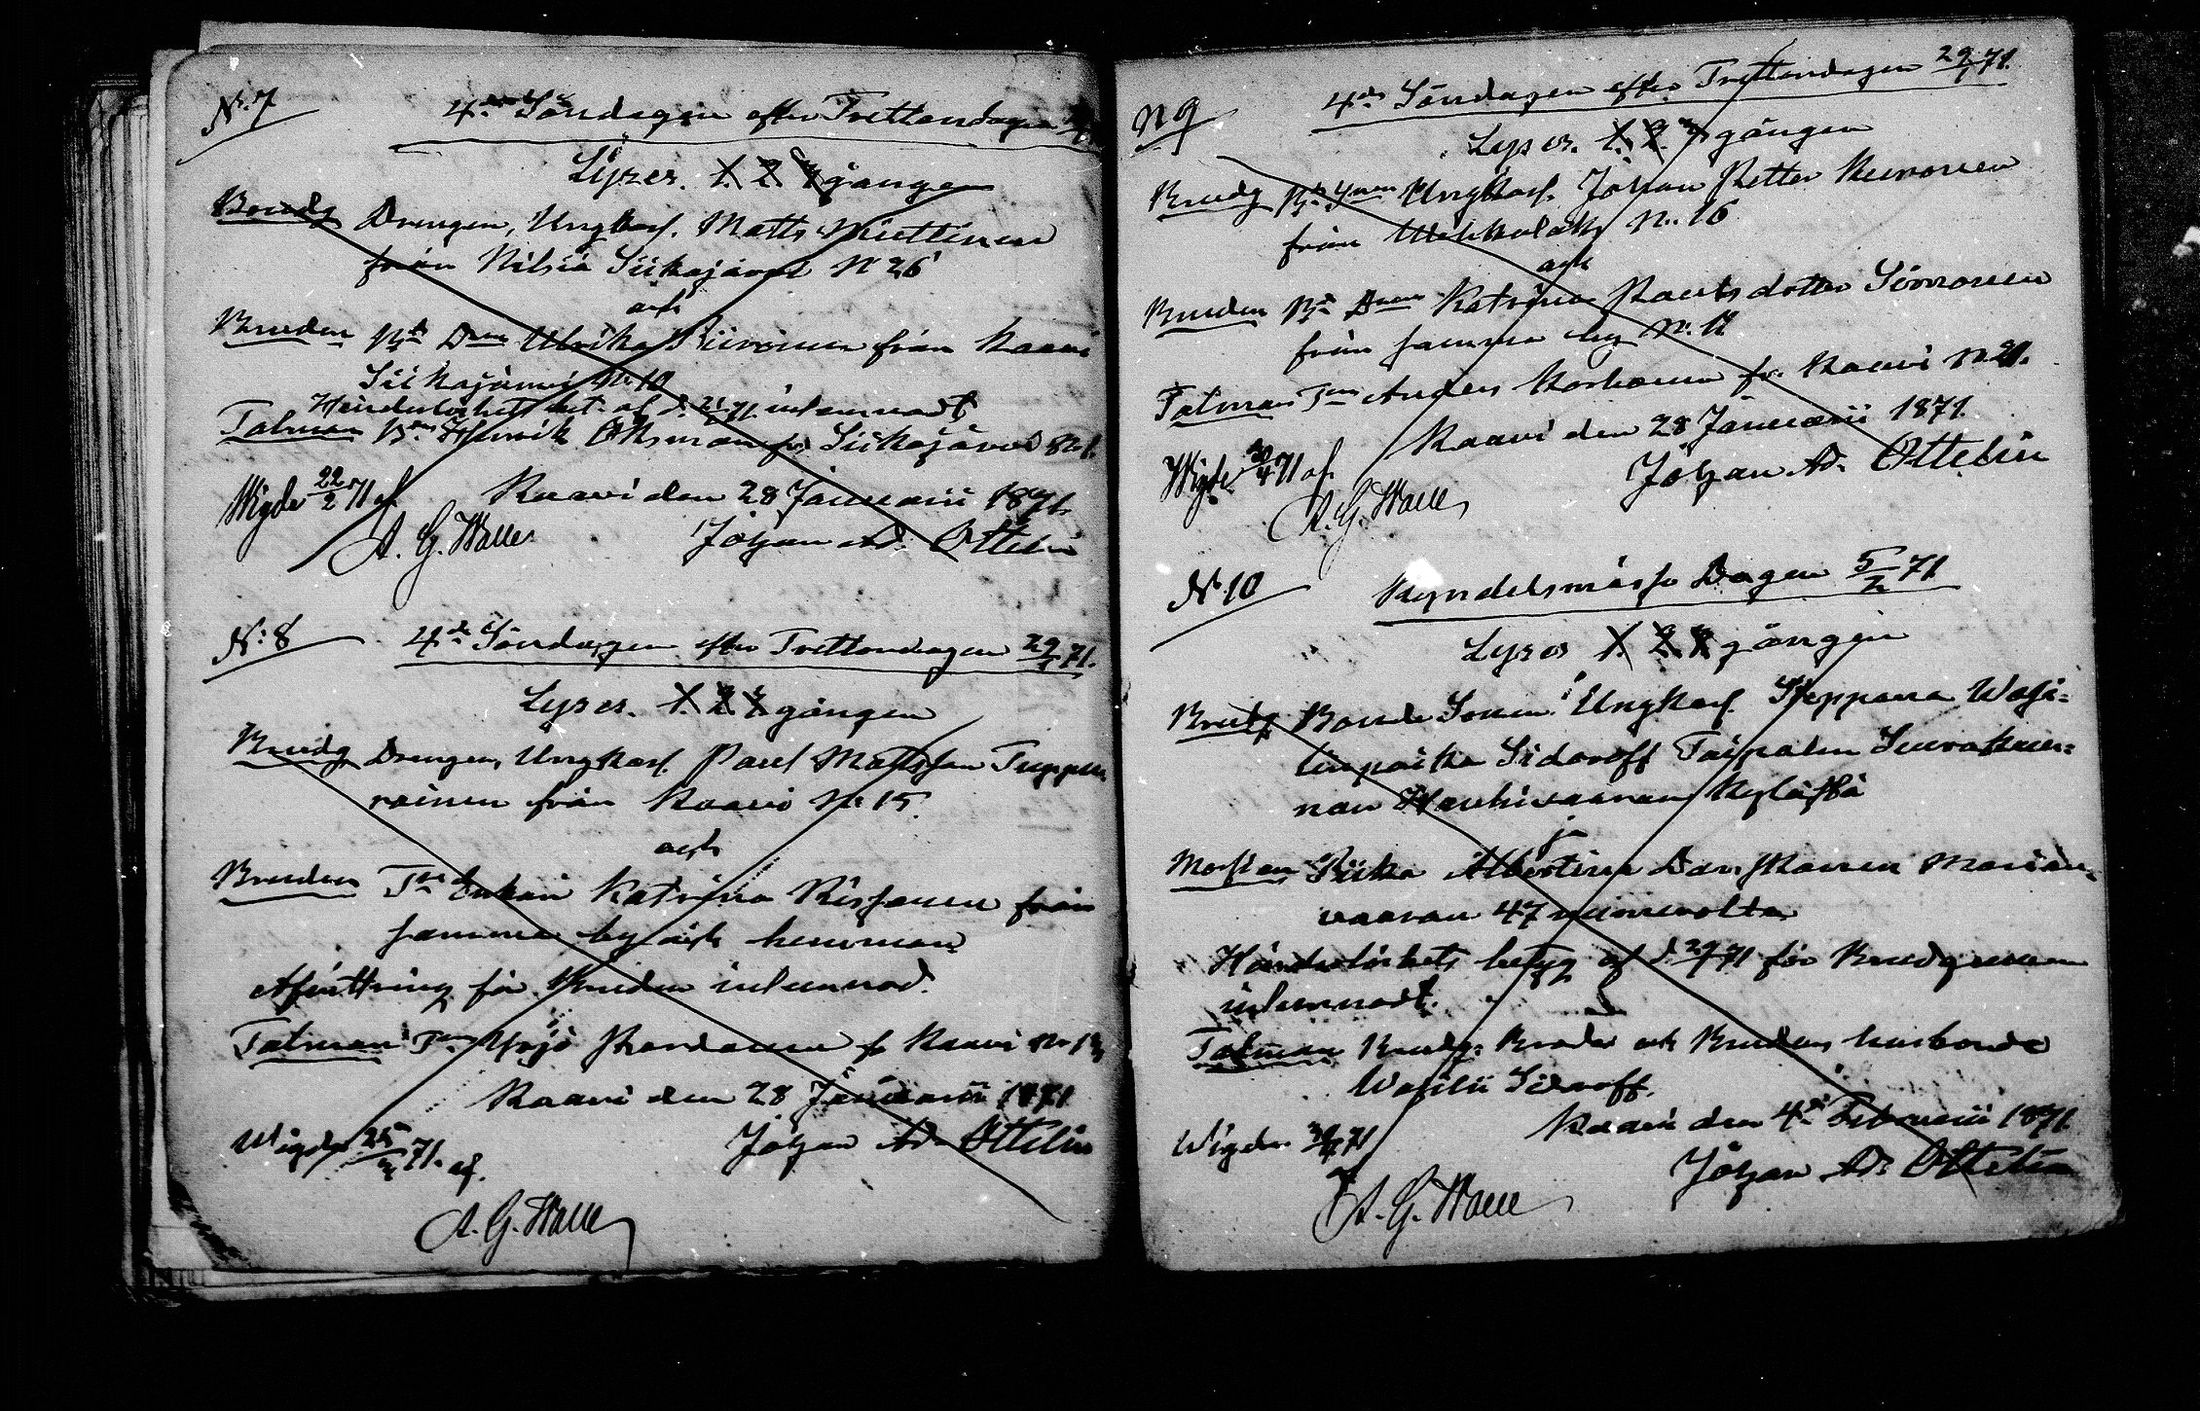 N:7
4de Söndagen efter Trettondagen
Lyses. 1. 2. 3 gången
Brudg Drengen, Ungkarl. Matts Miettinen
från Nilsiä Siikajärvi N 26
och
Bruden Bd Dren Ulrika Riironen från Kaavi
Siikajärvi No 10
Hinderlöshets bet. af d. 21/1 71 inlemnadt
Talman Bden Henrik Oksman fr Siikajärvi No 1.
Wigde 22/2 71 af
Kaavi den 28 Januarii 1871.
A. G. Walle
Johan Ad. Ottelin
N:8
4de Söndagen efter Trettondagen 29/1 71.
Lyses. 1. 2. 3 gången
Brudg Drengen, Ungkarl. Paul Mattsson Tuppu
rainen från Kaavi No 15.
och
Bruden Enkan Katrina Rissanen från
samma by och hemman
Afvittring för Bruden inlemnad.
Talman Yrjö fr Kaavi No
Kaavi den 28 Januarii 1871
Wigde 25/3 71. af.
Johan Ad. Ottelin
A. G. Walle
N 9
4de Söndagen efter Trettondagen 29/1 71.
Lyses. 1. 2. 3 gången
Brudg Bd Sonen Ungkarl. Johan Petter Keuronen
från No. 16
och
Bruden Bd Dren Katrina Paulsdotter Sirronen
från samma by No. 12
Talman Anders Korhonen fr. Kaavi No 21.
Kaavi den 28 Januarii 1871.
Wigde 71 af.
Johan Ad. Ottelin
A. G. Walle
N:10
Kyndelsmässo Dagen 5/2 71
Lyses 1. 2. 3 gången
Brudg Bonde Sonen Ungkarl. Steppana Wasi=
linpoika Sidoroff Taipalen Seurakun=
nan Haukivaaran Kylästä
ja
Morsian Piika Albertina Dav. Maarian=
vaaran 47 numerolta
Hinderlöshets betyg af d 29/1 71 för Brudgummen
inlemnadt.
Talman Brudg. Broder och Brudens husbonde
Wasilii Sidoroff.
Kaavi den 4de Februarii 1871.
Wigde 71
af
Johan Ad. Ottelin
A. G. Walle